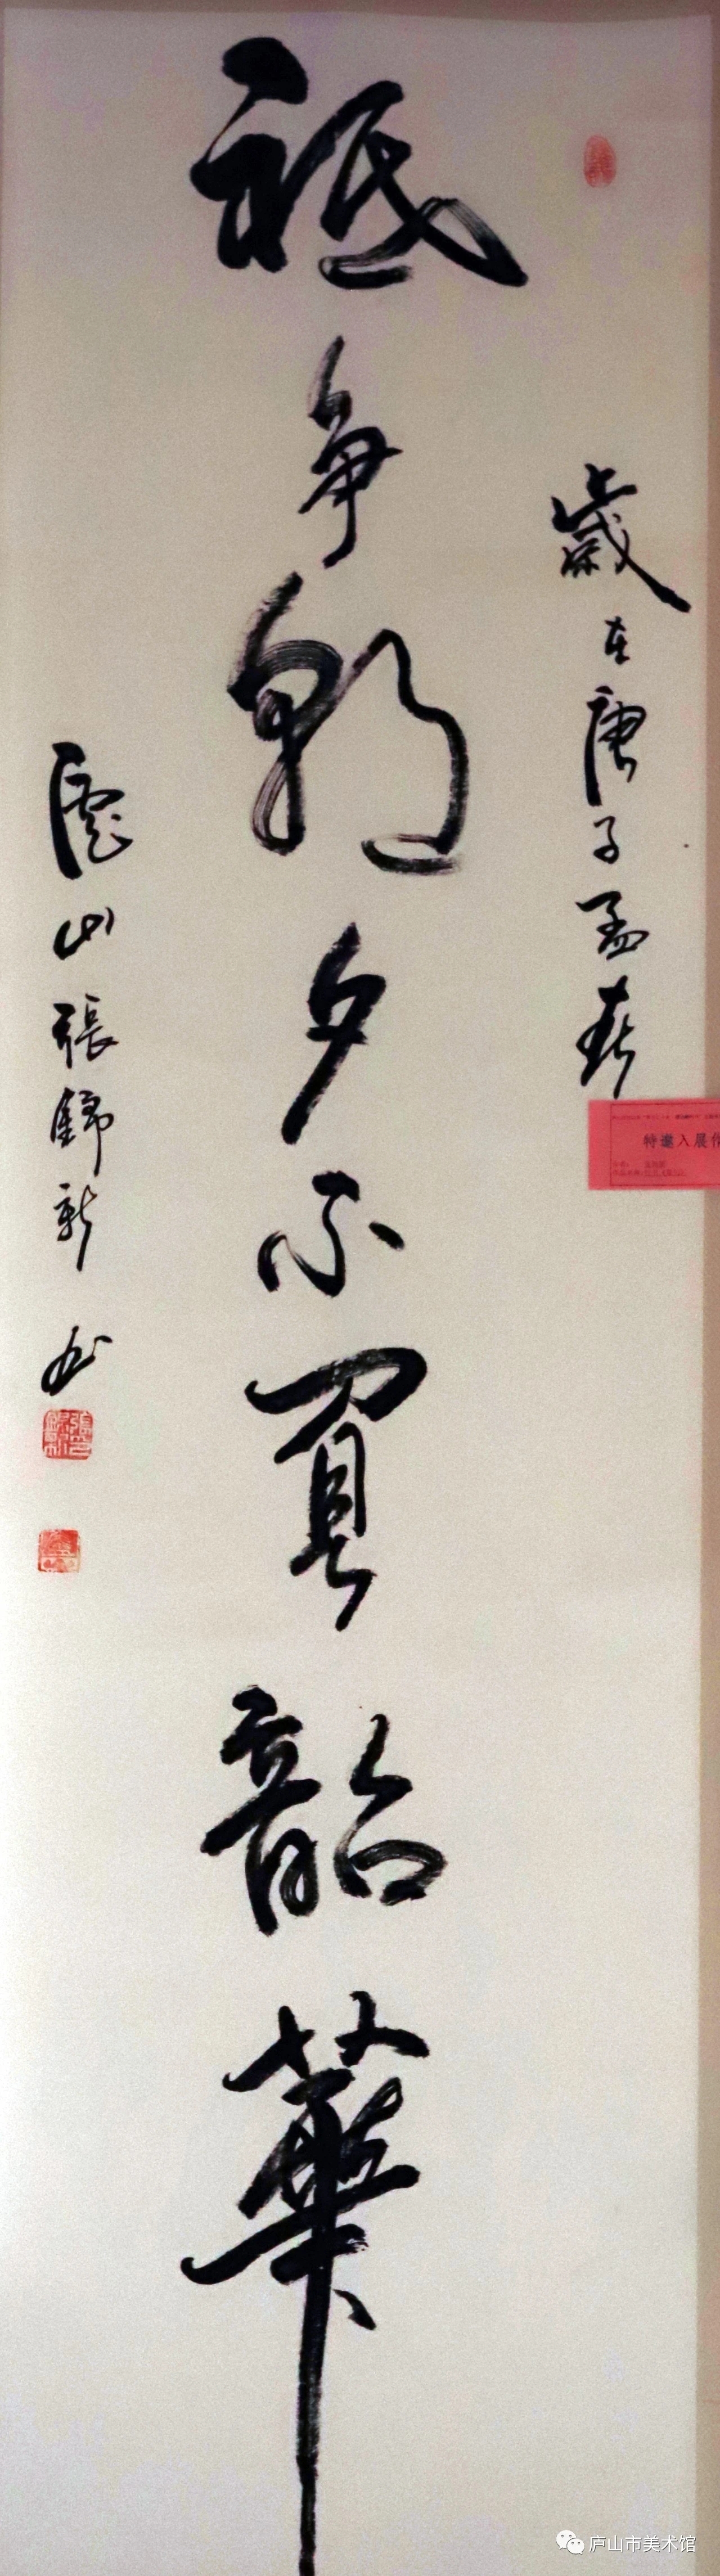 歲在庚子孟春
祗争朝夕不負韶華
廬山張錦新書
特邀入展作
庐山市美术馆